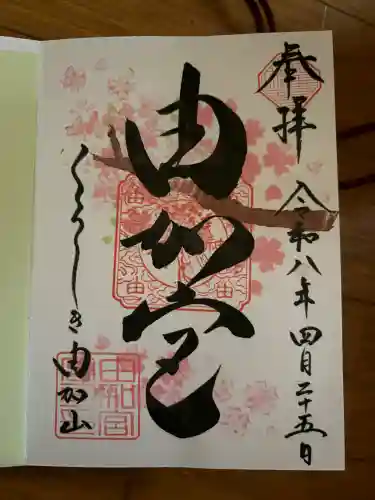 奉拝
令和八年四月二十五日
由加宮
くらしき由加山
由加宮